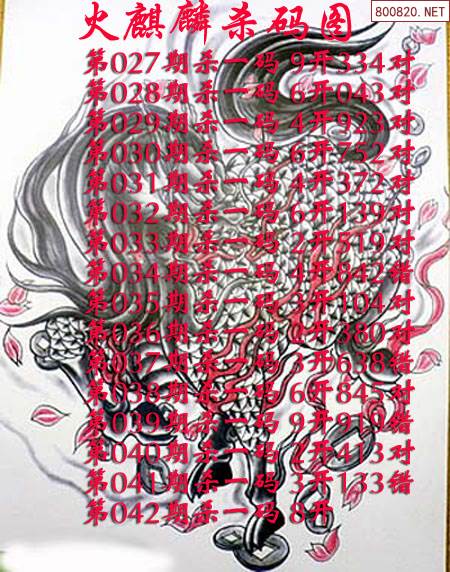 800820.NET
火麒麟杀码图
第027期杀一码 9开334对
第028期杀一码 6开043对
第029期杀一码 4开923对
第030期杀一码 6开752对
第031期杀一码 4开372对
第032期杀一码 6开139对
第033期杀一码 2开519对
第034期杀一码 4开842错
第035期杀一码 3开104对
第036期杀一码 2开380对
第037期杀一码 3开638错
第038期杀一码 6开845对
第039期杀一码 9开919错
第040期杀一码 2开413对
第041期杀一码 3开133错
第042期杀一码 8开